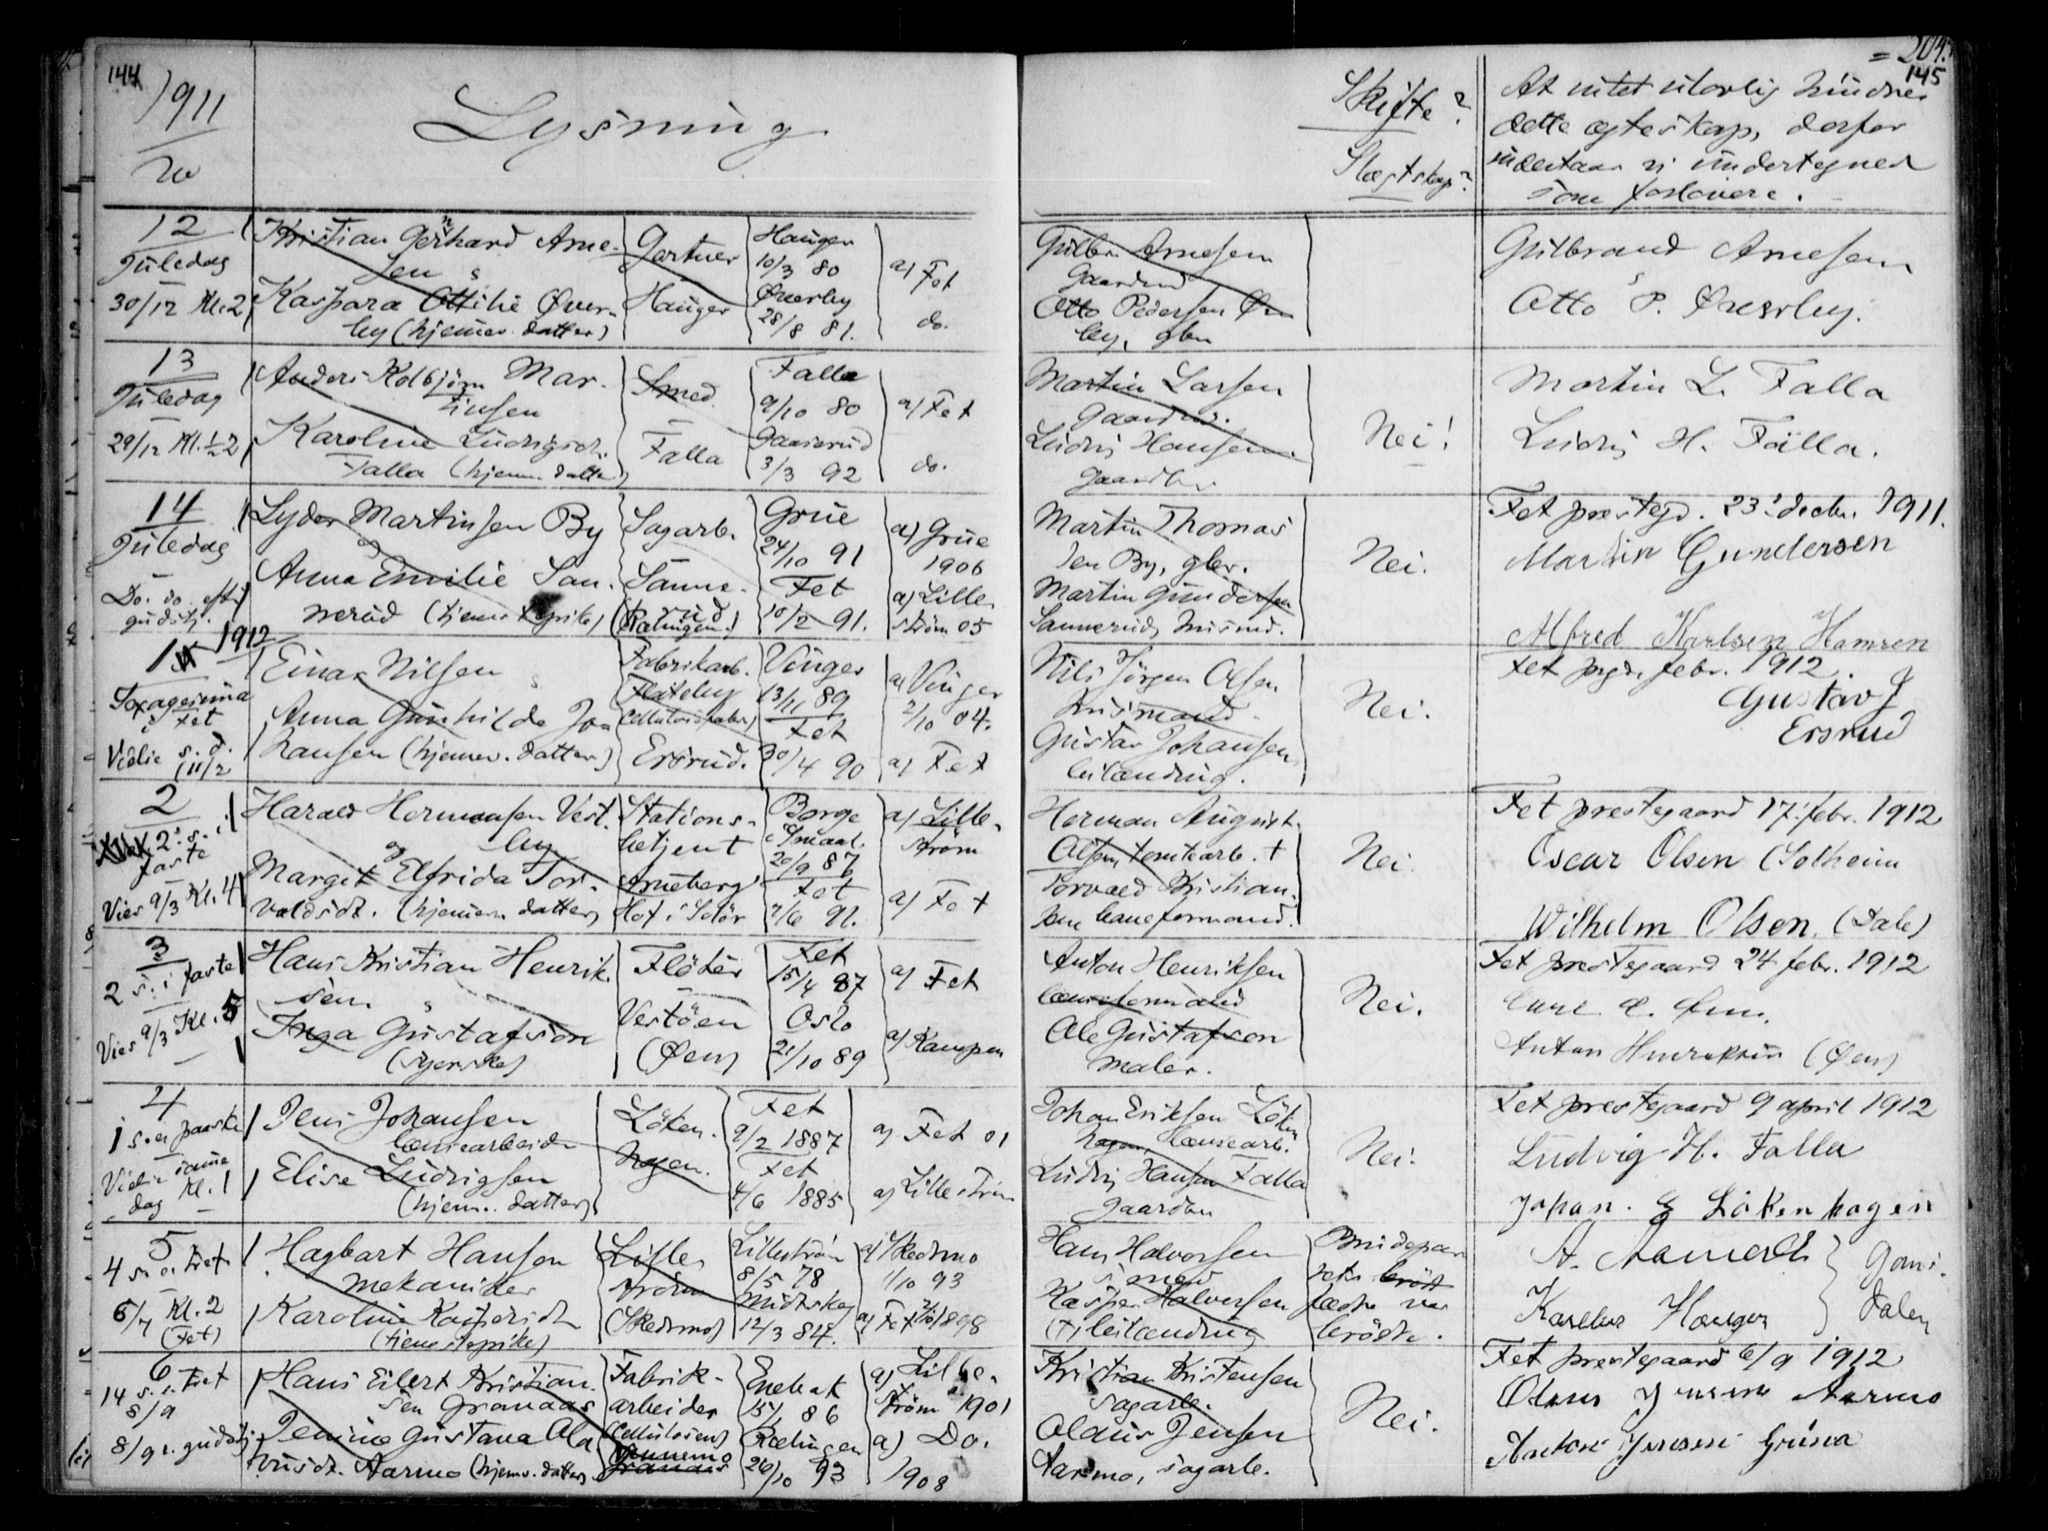 144
1911
Lysning
Skifte?
Slegtskap?
= 204.
145
At intet ulovlig hindrer
dette egteskap, derfor
indestaar vi undertegned
som forlovere.
12
Juledag
30/12 Kl. 2
Kristian Gerhard Arne-
sen
Kaspara Ottilie Øver-
by (hjemmev. datter)
Gartner
Hauger
Hauger
10/3 80
Øverby
28/8 81.
a) Fet
do.
Gulbr. Arnesen
Gaardbr
Otto Pedersen Øver
by, gbr
Gulbrand Arnesen
Otto P. Øverby.
13
Juledag
29/12 Kl. 1/2 2
Anders Kolbjörn Mar-
tinsen
Karoline Ludvigsdt.
Falla (hjem. datter)
Smed
Falla
Falla
9/10 80
Gaaserud
3/3 92
a) Fet
do.
Martin Larsen
Gaardbr.
Ludvig Hansen
gaardbr
Nei!
Martin L. Falla
Ludvig H. Falla.
14
Juledag
Do. do. eft.
gudstj.
Lyder Martinsen By
Anna Emilie San-
nerud (tjenestepike)
Sagarb.
Sanne-
rud
(Rælingen)
Grue
24/10 91
Fet
10/2 91.
a) Grue
1906
a) Lille-
ström 05
Martin Thomas
sen By, gbr.
Martin Gundersen
Sannerud, husmd.
Nei.
Fet prestegd. 23' decbr. 1911.
Martin Gundersen
Alfred Karlsen Hamren
1 1912
Sexagesima
i Fet
Vielse s. d.
11/2
Einar Nilsen
Anna Gunhilde Jo-
hansen (hjemmev. datter)
Fabrikarb.
Flateby
Cellulosefabr)
Ersrud.
Vinger
13/11 89
Fet
30/4 90
a) Vinger
2/10 04.
a) Fet
Nils Jörgen Olsen
Husmand
Gustav Johansen,
leilænding.
Nei.
Fet prgd. febr. 1912.
Gustav J
Ersrud
2
2' s. i
faste
Vies 9/3 Kl. 4
Harald Hermansen Vest-
by
og
Margit Elfrida Tor-
valdsdt. (hjemmev. datter)
Stations-
betjent
Arneberg
Hof i Solör
Borge
i Smaal.
20/9 87
Fet
7/6 91.
a) Lille-
ström
a) Fet
Herman August
Olsen, tomtearb. +
Torvald Kristian-
sen baneformand.
Nei.
Fet prestegaard 17' febr. 1912
Oscar Olsen (Solheim
Wilhelm Olsen (Dale)
3
2 s. i faste
Vies 9/3 Kl. 5
Hans Kristian Henrik-
sen
Inga Gustafson
(syerske)
Flöter
Vestöen
(Øen)
Fet
15/4 87
Oslo
21/10 89
a) Fet
a) Kampen
Anton Henriksen
lænseformand
Ole Gustafson
maler.
Nei.
Fet prestegaard 24 febr. 1912
Anton Henriksen (Øen)
4
1 s. e. paaske
Vielse samme
dag Kl. 1
Jens Johansen
lænsearbeider
Elise Ludvigsen
(hjemm. datter)
Löken-
hagen.
Fet
9/2 1887
Fet
4/6 1885
a) Fet 01
a) Lilleström
Johan Eriksen Löken
hagen, lænsearb.
Ludvig Hansen Falla
gaardbr
Nei.
Fet prestegaard 9 april 1912
Ludvig H. Falla
Johan. E Lökenhagen
5
4 s. e. tref.
6/7 Kl. 2
(Fet)
Hagbart Hansen
mekaniker
Karoline Kaspersdt
(tjenestepike)
Lille-
ström
(Skedsmo)
Lilleström
8/5 78
12/3 84.
a) Skedsmo
1/10 93
a) Fet 2/10 1898
Hans Halvorsen
smed
Kasper Halvorsen
(+) leilænding
Brudepar
rets
fædre var
brödre.
Karelius Hauger
6
14 s. e. tref
8/9
8/9 e. gudstj.
Hans Eilert Kristian-
sen Granaas
Jenine Gustava Ola
vusdt. Aarmo (hjemv. datter)
Fabrik-
arbeider
(Cellulosen)
Enebak
15/1 86
Rælingen
26/10 93
a) Lille-
ström 1901
a) Do.
1908
Kristian Kristensen
sagarb.
Olaus Jensen
Aarmo, sagarb.
Nei.
Fet prestegaard 6/9 1912
Olaus Jensen Aarmo
Anton Jensen